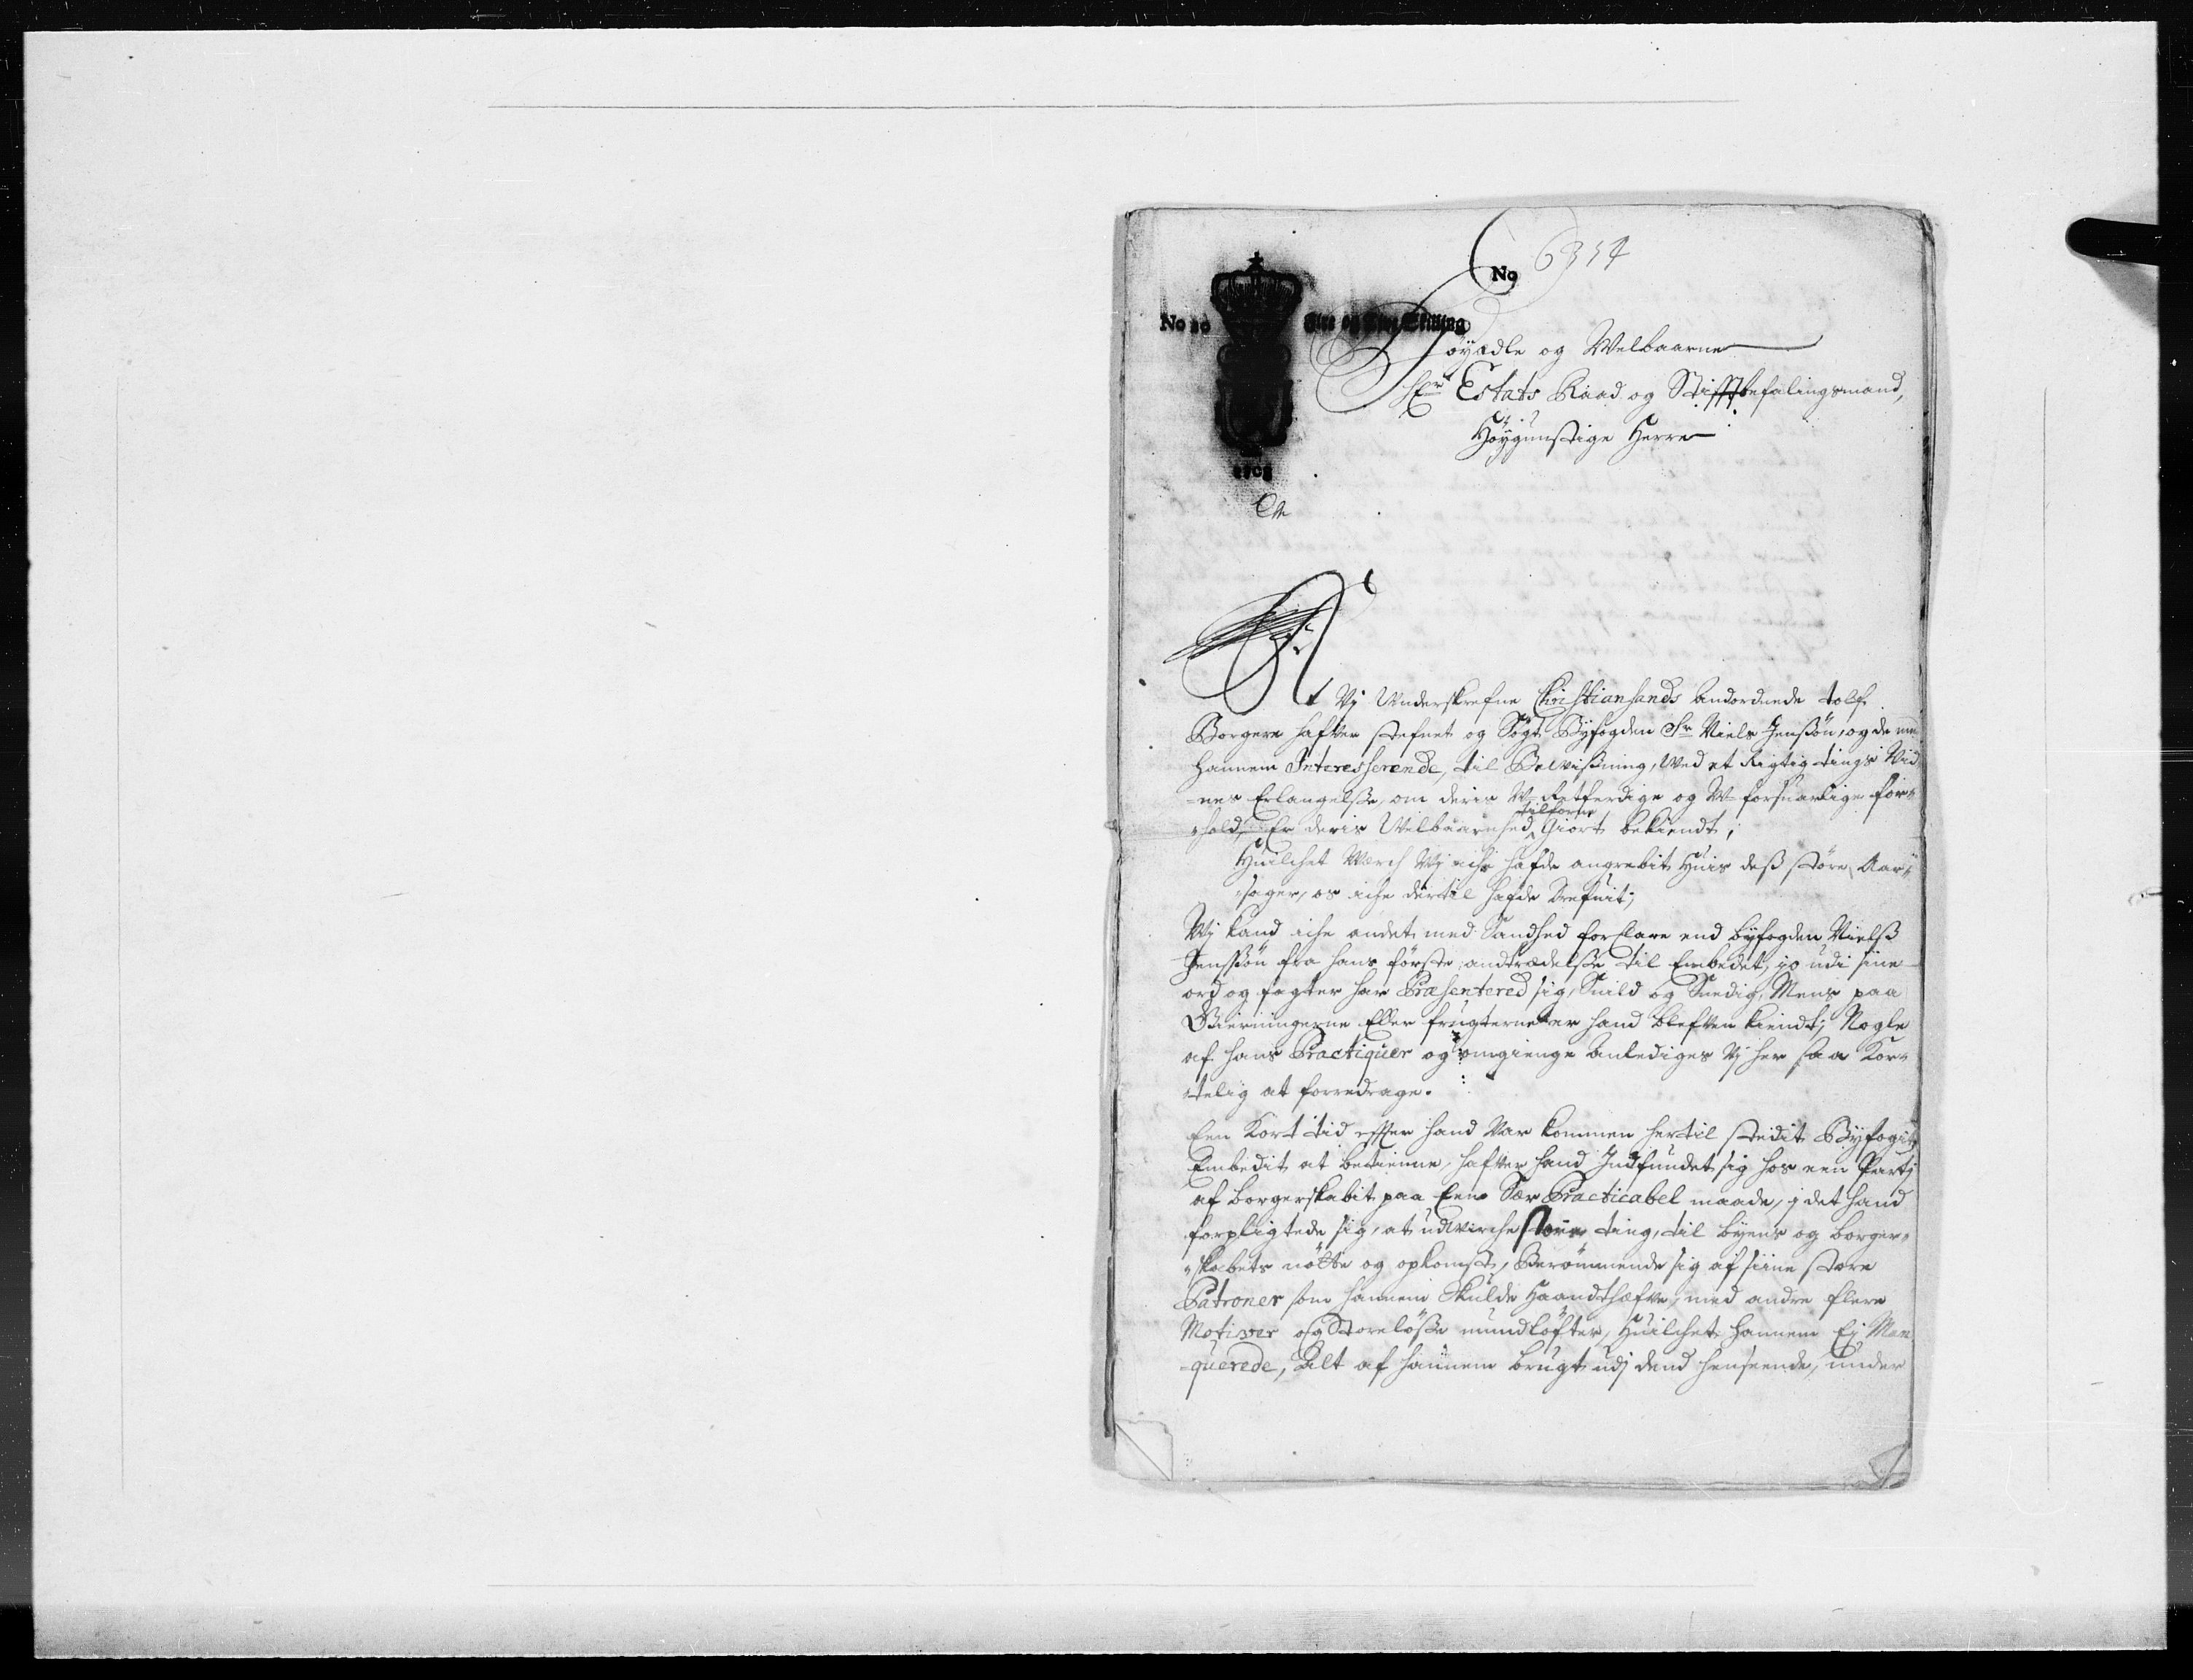 No 6354
No 20 Fire og Tive Skilling
Høyædle og Welbaarne
Hr Estats Raad og Stifftbefalingsmand,
Høygunstige Herre
1705
At Vj Underskrefne Christiansands Anordnede tolf
Borgere hafver stefnet og Søgt Byfogden Sr Niels Jenssøn, og de med
hannem Interesserende, til Bewisning, Wed et Rigtig tings Vid
=nes Erlangelsse, om deris W-Retferdige og W-forsuarlige for=
=hold, Er deris Velbaarnhed tilforne Giort bekiendt;
Huilchet Werch Wj iche hafde angrebit Huis dess støre Aar=
=sager, os iche dertil hafde drefuit;
Wj kand iche andet med Sandhed forclare end byfogden Nielss
Jenssøn fra hans første andtrædelsse til Embedet, jo udi sine
ord og fagter har Præsentered sig, Snild og Snedig, Mens paa
Gierningerne Eller frugterne er hand blefven kiendt; Nogle
af hans Practiquer og omgienge Anlediges Vj her saa Kor=
=telig at forredrage.
Een Kort tid efter hand Var kommen hertil stedit Byfogit
Embedit at betienne, hafver hand Indfundet sig hos een Partj
af borgerskabit paa Een Sær Practicabel maade, j det hand
forpligtede sig, at udwirche store ting, til byens og borger=
=skabets nøtte og opkomst, Berømmende sig af siine store
Patroner som hannem Skulde Haandthæfve, med andre flere
Motiver og Storeløsse mundløfter, Huilchet hannem Ej Man
=querede, Alt af hannem brugt udj dend henseende, under